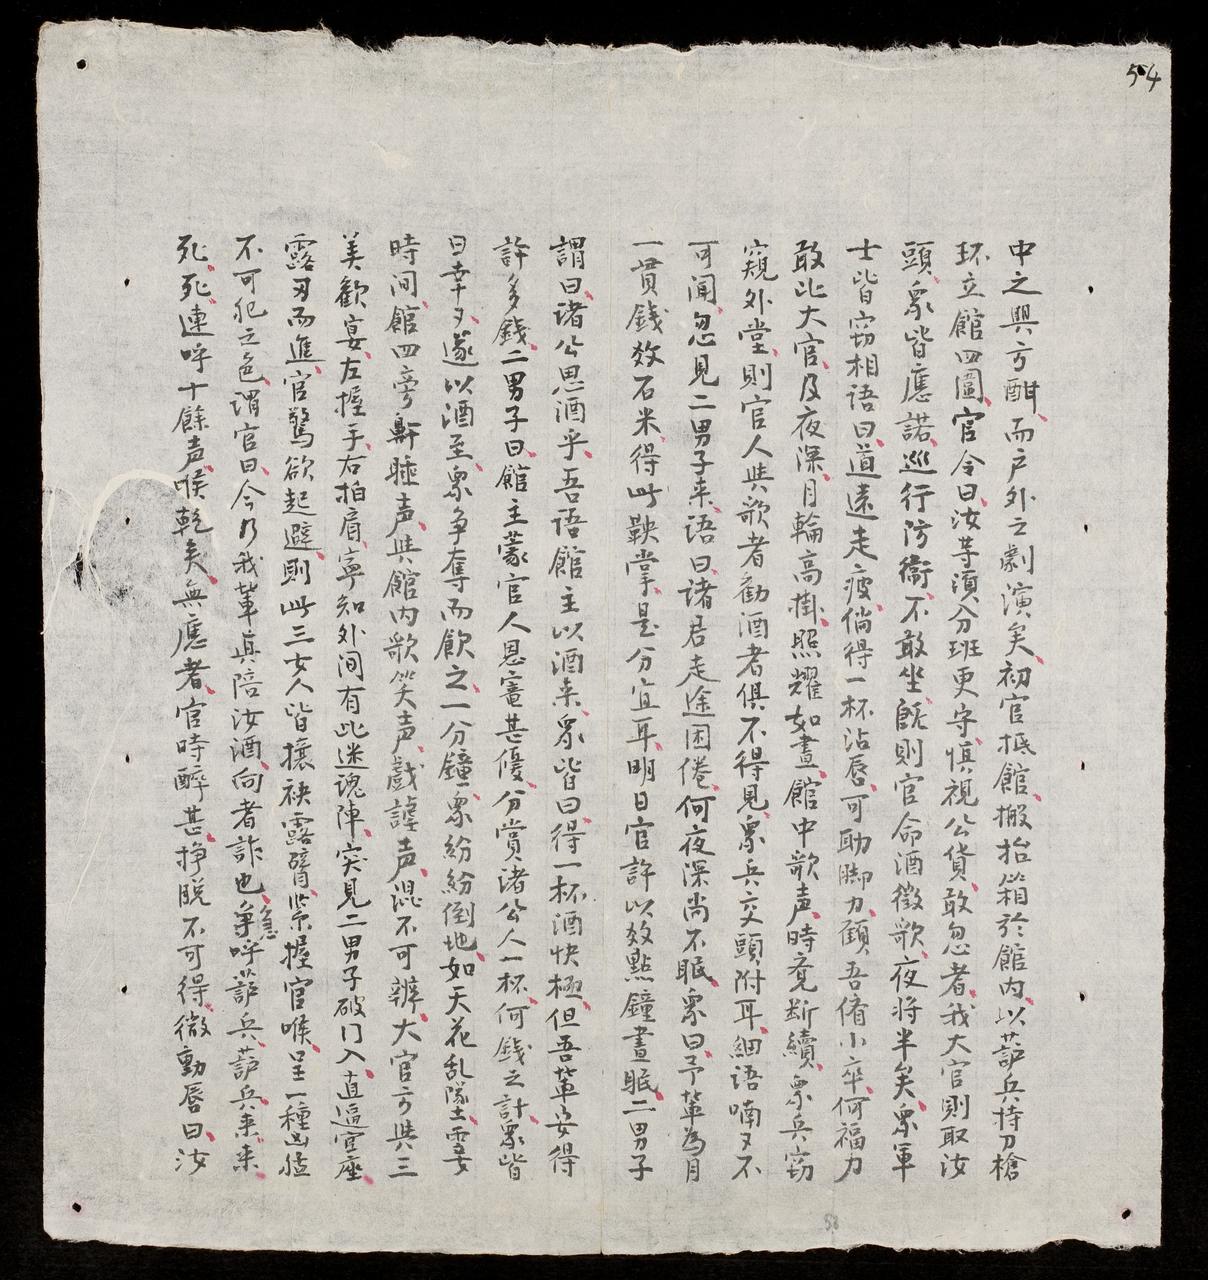 54
中之興方酣而戶外之劇演矣初官抵館搬抬箱於館内以葫兵持刀槍
环立館四圍官令曰汝等須分班更守慎視公貨敢忽者我大官則取汝
頭衆皆應諾巡行防衛不敢坐既則官命酒徵歌夜将半矣衆軍
士皆窃相語曰道遠走疲倘得一杯沾唇可助脚力顧吾脩小卒何福力
敢比大官及夜深月輪高掛照耀如晝館中歌声時竟断續衆兵窃
窺外堂則官人與歌者勸酒者俱不得見衆兵交頭附耳細語喃々不
可闻忽見二男子来語曰諸君走途困倦何夜深尚不眠衆曰予輩為月
一貫錢效石米得此鞅掌是分宜耳明日官許以效點鐘晝眠二男子
謂曰诸公思酒乎吾語館主以酒来衆皆曰得一杯酒快極但吾輩安得
許多錢二男子曰館主蒙官人恩寵甚優分賞诸公人一杯何錢之計衆皆
曰幸々遂以酒至衆争奪而飲之一分鐘衆紛紛倒地如天花乱隊土雯
時间館四旁鼾睡声與館内歌笑声戲謔声混不可辨大官方與三
美歡宴左握手右拍肩寧知外间有此迷魂陣突見二男子破门入直逼官座
露刃而進官驚欲起避則此三女人皆攘袂露臂紧握官喉呈一種凶猛
不可犯之色谓官曰今乃我輩真陪汝酒向者詐也急争呼葫兵葫兵来来
死死連呼十餘声喉乾矣無應者官時醉甚挣脱不可得微動唇曰汝
58